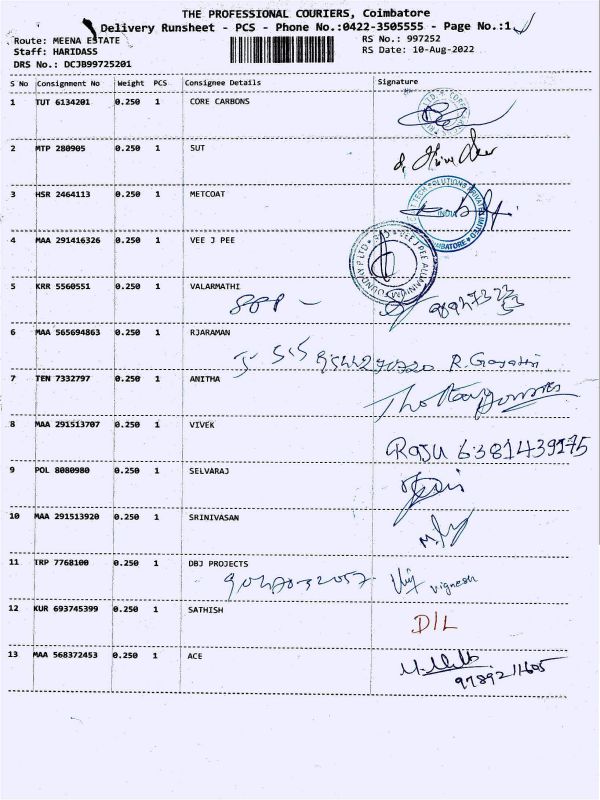 THE PROFESSIONAL COURIERS, Coimbatore
Delivery Runsheet - PCS - Phone No.:0422-3505555 - Page No.:1
Route: MEENA ESTATE RS No.: 997252
Staff: HARIDASS RS Date: 10-Aug-2022
DRS No.: DCJB99725201
S No Consignment No Weight PCS Consignee Details Signature
1 TUT 6134201 0.250 1 CORE CARBONS
2 MTP 280905 0.250 1 SUT
3 HSR 2464113 0.250 1 METCOAT
4 MAA 291416326 0.250 1 VEE J PEE
5 KRR 5560551 0.250 1 VALARMATHI
6 MAA 565694863 0.250 1 RJARAMAN
R. Gayatri
7 TEN 7332797 0.250 1 ANITHA
8 MAA 291513707 0.250 1 VIVEK
Raju 6381439175
9 POL 8080980 0.250 1 SELVARAJ
10 MAA 291513920 0.250 1 SRINIVASAN
11 TRP 7768100 0.250 1 DBJ PROJECTS
vignesh
12 KUR 693745399 0.250 1 SATHISH
D/L
13 MAA 568372453 0.250 1 ACE
9789211605